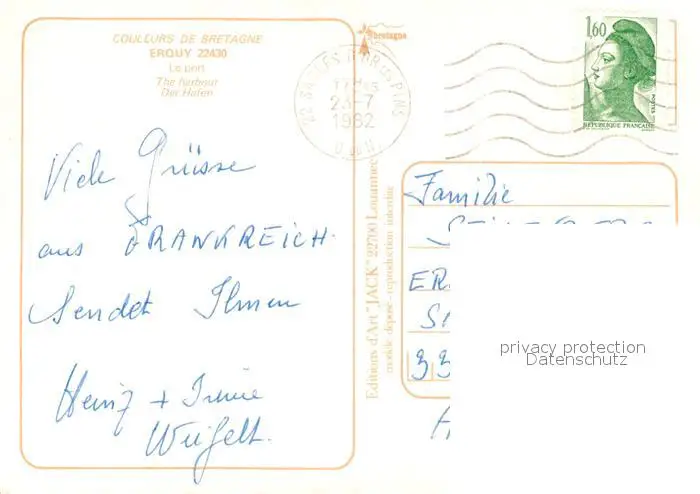 COULEURS DE BRETAGNE
ERQUY 22430
Le port
The harbour
Der Hafen
bretagne
17H45
23-7
1982
1,60
POSTES
REPUBLIQUE FRANÇAISE
Viele Grüsse
aus FRANKREICH.
Sendet Ihnen
Heinz + Irene
Weigelt.
Editions d'Art "JACK" 22700 Louannec
modèle déposé - reproduction interdite
Familie
ER
33
privacy protection
Datenschutz